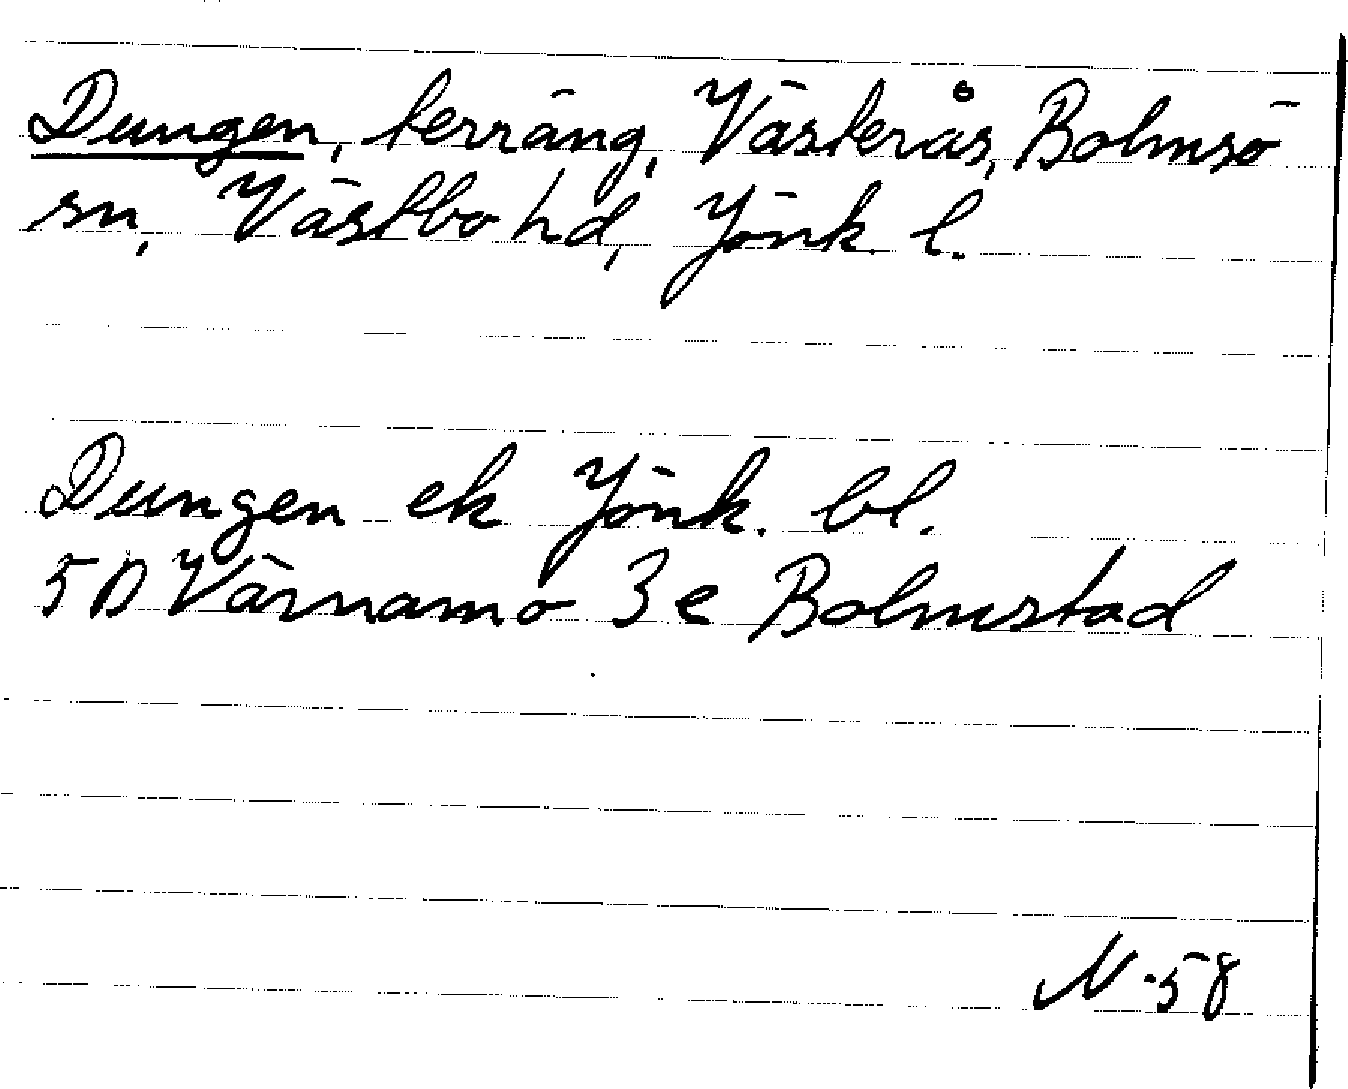 Dungen, terräng, Västerås, Bolmsö
sn, Västbo hd, Jönk. l.
Dungen ek Jönk. bl.
5D Värnamo 3e Bolmstad
N-58